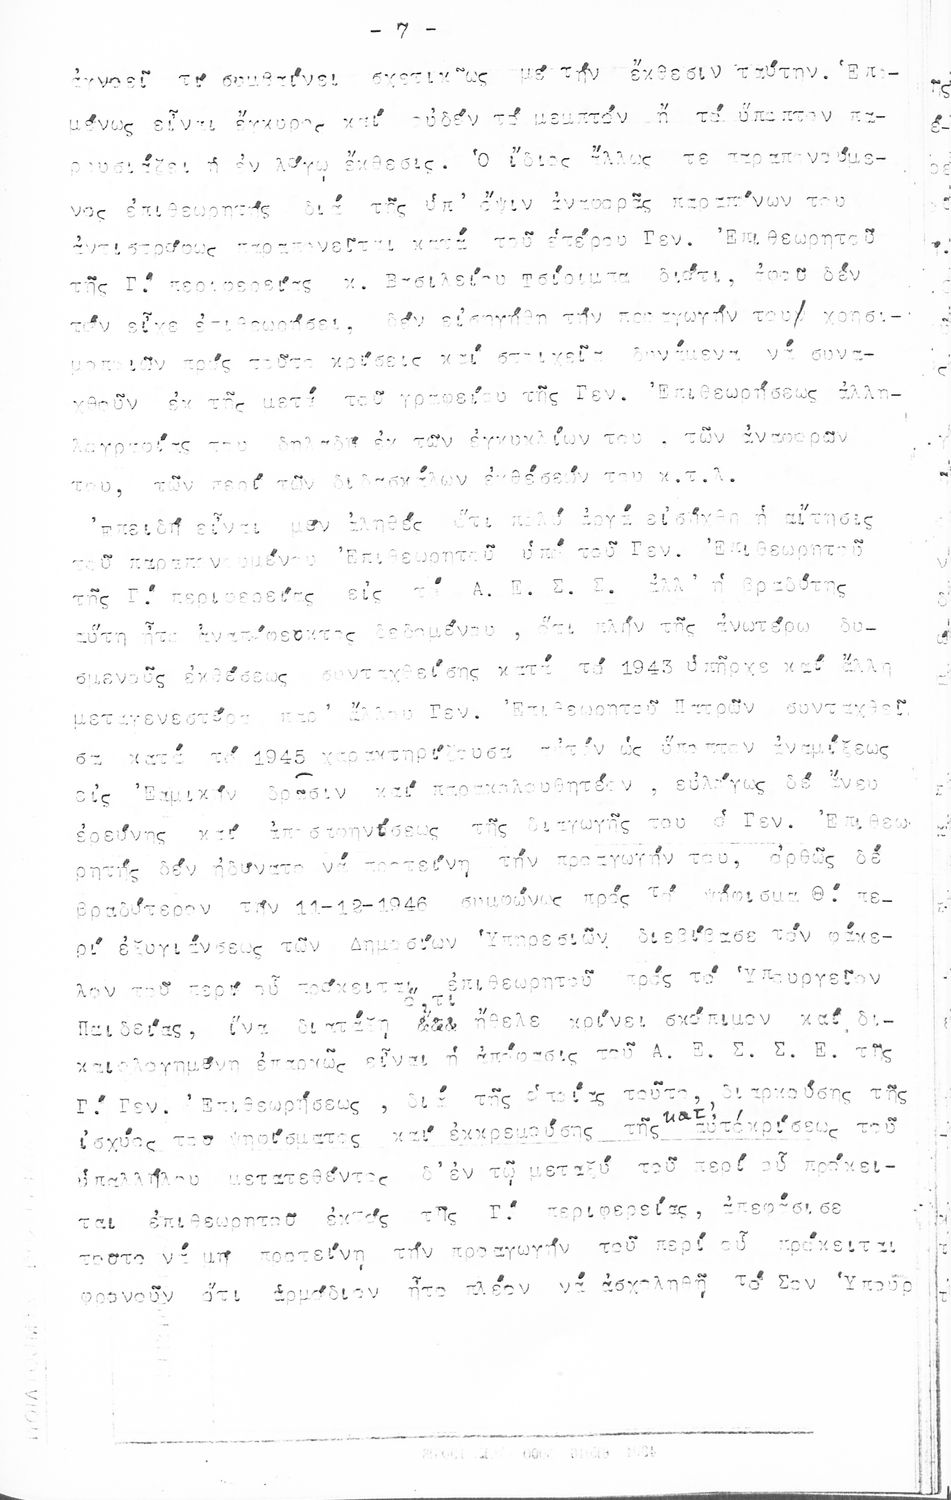 - 7 -
ἀγνοεῖ τί συμβαίνει σχετικῶς μέ τήν ἔκθεσιν ταύτην. Ἑπο-
μένως εἶναι ἔγκυρος καί οὐδέν τό μεμπτόν ἤ τό ὕποπτον πα-
ρουσιάζει ἡ ἐν λόγῳ ἔκθεσις. Ὁ ἴδιος ἄλλως τε παραπονούμε-
νος ἐπιθεωρητής διά τῆς ὑπ' ὄψιν ἀναφορᾶς παραπόνων του
ἀντιστρόφως παραπονεῖται κατά τοῦ ἑτέρου Γεν. Ἐπιθεωρητοῦ
τῆς Γ΄ περιφερείας κ. Βασιλείου Τσίριμπα διότι, ἀφοῦ δέν
τόν εἶχε ἐπιθεωρήσει, δέν εἰσηγήθη τήν προαγωγήν του χρησι-
μοποιῶν πρός τοῦτο κρίσεις καί στοιχεῖα δυνάμενα νά συνα-
χθοῦν ἐκ τῆς μετά τοῦ γραφείου τῆς Γεν. Ἐπιθεωρήσεως ἀλλη-
λογραφίας του δηλαδή ἐκ τῶν ἐγκυκλίων του . τῶν ἀναφορῶν
του, τῶν περί τῶν διδασκάλων ἐκθέσεών του κ.τ.λ.
Ἐπειδή εἶναι μέν ἀληθές ὅτι πολύ ἀργά εἰσήχθη ἡ αἴτησις
τοῦ παραπονουμένου Ἐπιθεωρητοῦ ὑπό τοῦ Γεν. Ἐπιθεωρητοῦ
τῆς Γ΄ περιφερείας εἰς τό Α. Ε. Σ. Σ. ἀλλ' ἡ βραδύτης
αὕτη ἦτο ἀναπόφευκτος δεδομένου , ὅτι πλήν τῆς ἀνωτέρω δυ-
σμενοῦς ἐκθέσεως συνταχθείσης κατά τό 1943 ὑπῆρχε καί ἄλλη
μεταγενεστέρα παρ' ἄλλου Γεν. Ἐπιθεωρητοῦ Πατρῶν συνταχθεῖ
σα κατά τό 1945 χαρακτηρίζουσα αὐτόν ὡς ὕποπτον ἀναμίξεως
εἰς Ἐαμικήν δρᾶσιν καί παρακολουθητέον , εὐλόγως δέ ἄνευ
ἐρεύνης καί ἀποσαφηνίσεως τῆς διαγωγῆς του ὁ Γεν. Ἐπιθεω
ρητής δέν ἠδύνατο νά προτείνη τήν προαγωγήν του, ὀρθῶς δέ
βραδύτερον τήν 11-12-1946 συμφώνως πρός τό ψήφισμα Θ΄ πε-
ρί ἐξυγιάνσεως τῶν Δημοσίων Ὑπηρεσιῶν διεβίβασε τόν φάκε-
λον τοῦ περί οὗ πρόκειται ἐπιθεωρητοῦ πρός τό Ὑπουργεῖον
Παιδείας, ἵνα διατάξη ὅ,τι ἤθελε κρίνει σκόπιμον καί δι-
καιολογημένη ἐπαρκῶς εἶναι ἡ ἀπόφασις τοῦ Α. Ε. Σ. Σ. Ε. τῆς
Γ΄ Γεν. Ἐπιθεωρήσεως , διά τῆς ὁποίας τοῦτο, διαρκούσης τῆς
ἰσχύος του ψηφίσματος καί ἐκκρεμούσης τῆς κατ' αὐτό κρίσεως τοῦ
ὑπαλλήλου μετατεθέντος δ'ἐν τῷ μεταξύ τοῦ περί οὗ πρόκει-
ται ἐπιθεωρητοῦ ἐκτός τῆς Γ΄ περιφερείας, ἀπεφάσισε
τοῦτο νά μή προτείνη τήν προαγωγήν τοῦ περί οὗ πρόκειται
φρονοῦν ὅτι ἁρμόδιον ἦτο πλέον νά ἀσχοληθῆ τό Σον Ὑπουρ